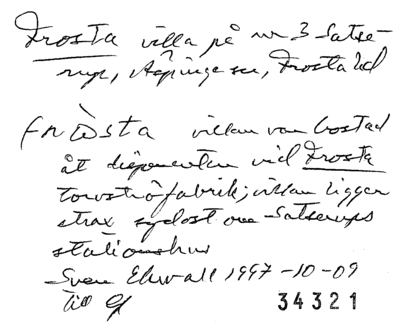 Frosta villa på nr 3 Satse-
rup, Äspinge sn, Frosta hd
fròsta villan var bostad
åt disponenten vid Frosta
torvströfabrik; villan ligger
strax sydost om Satserups
stationshus
Sven Ekwall 1997-10-09
till
34321